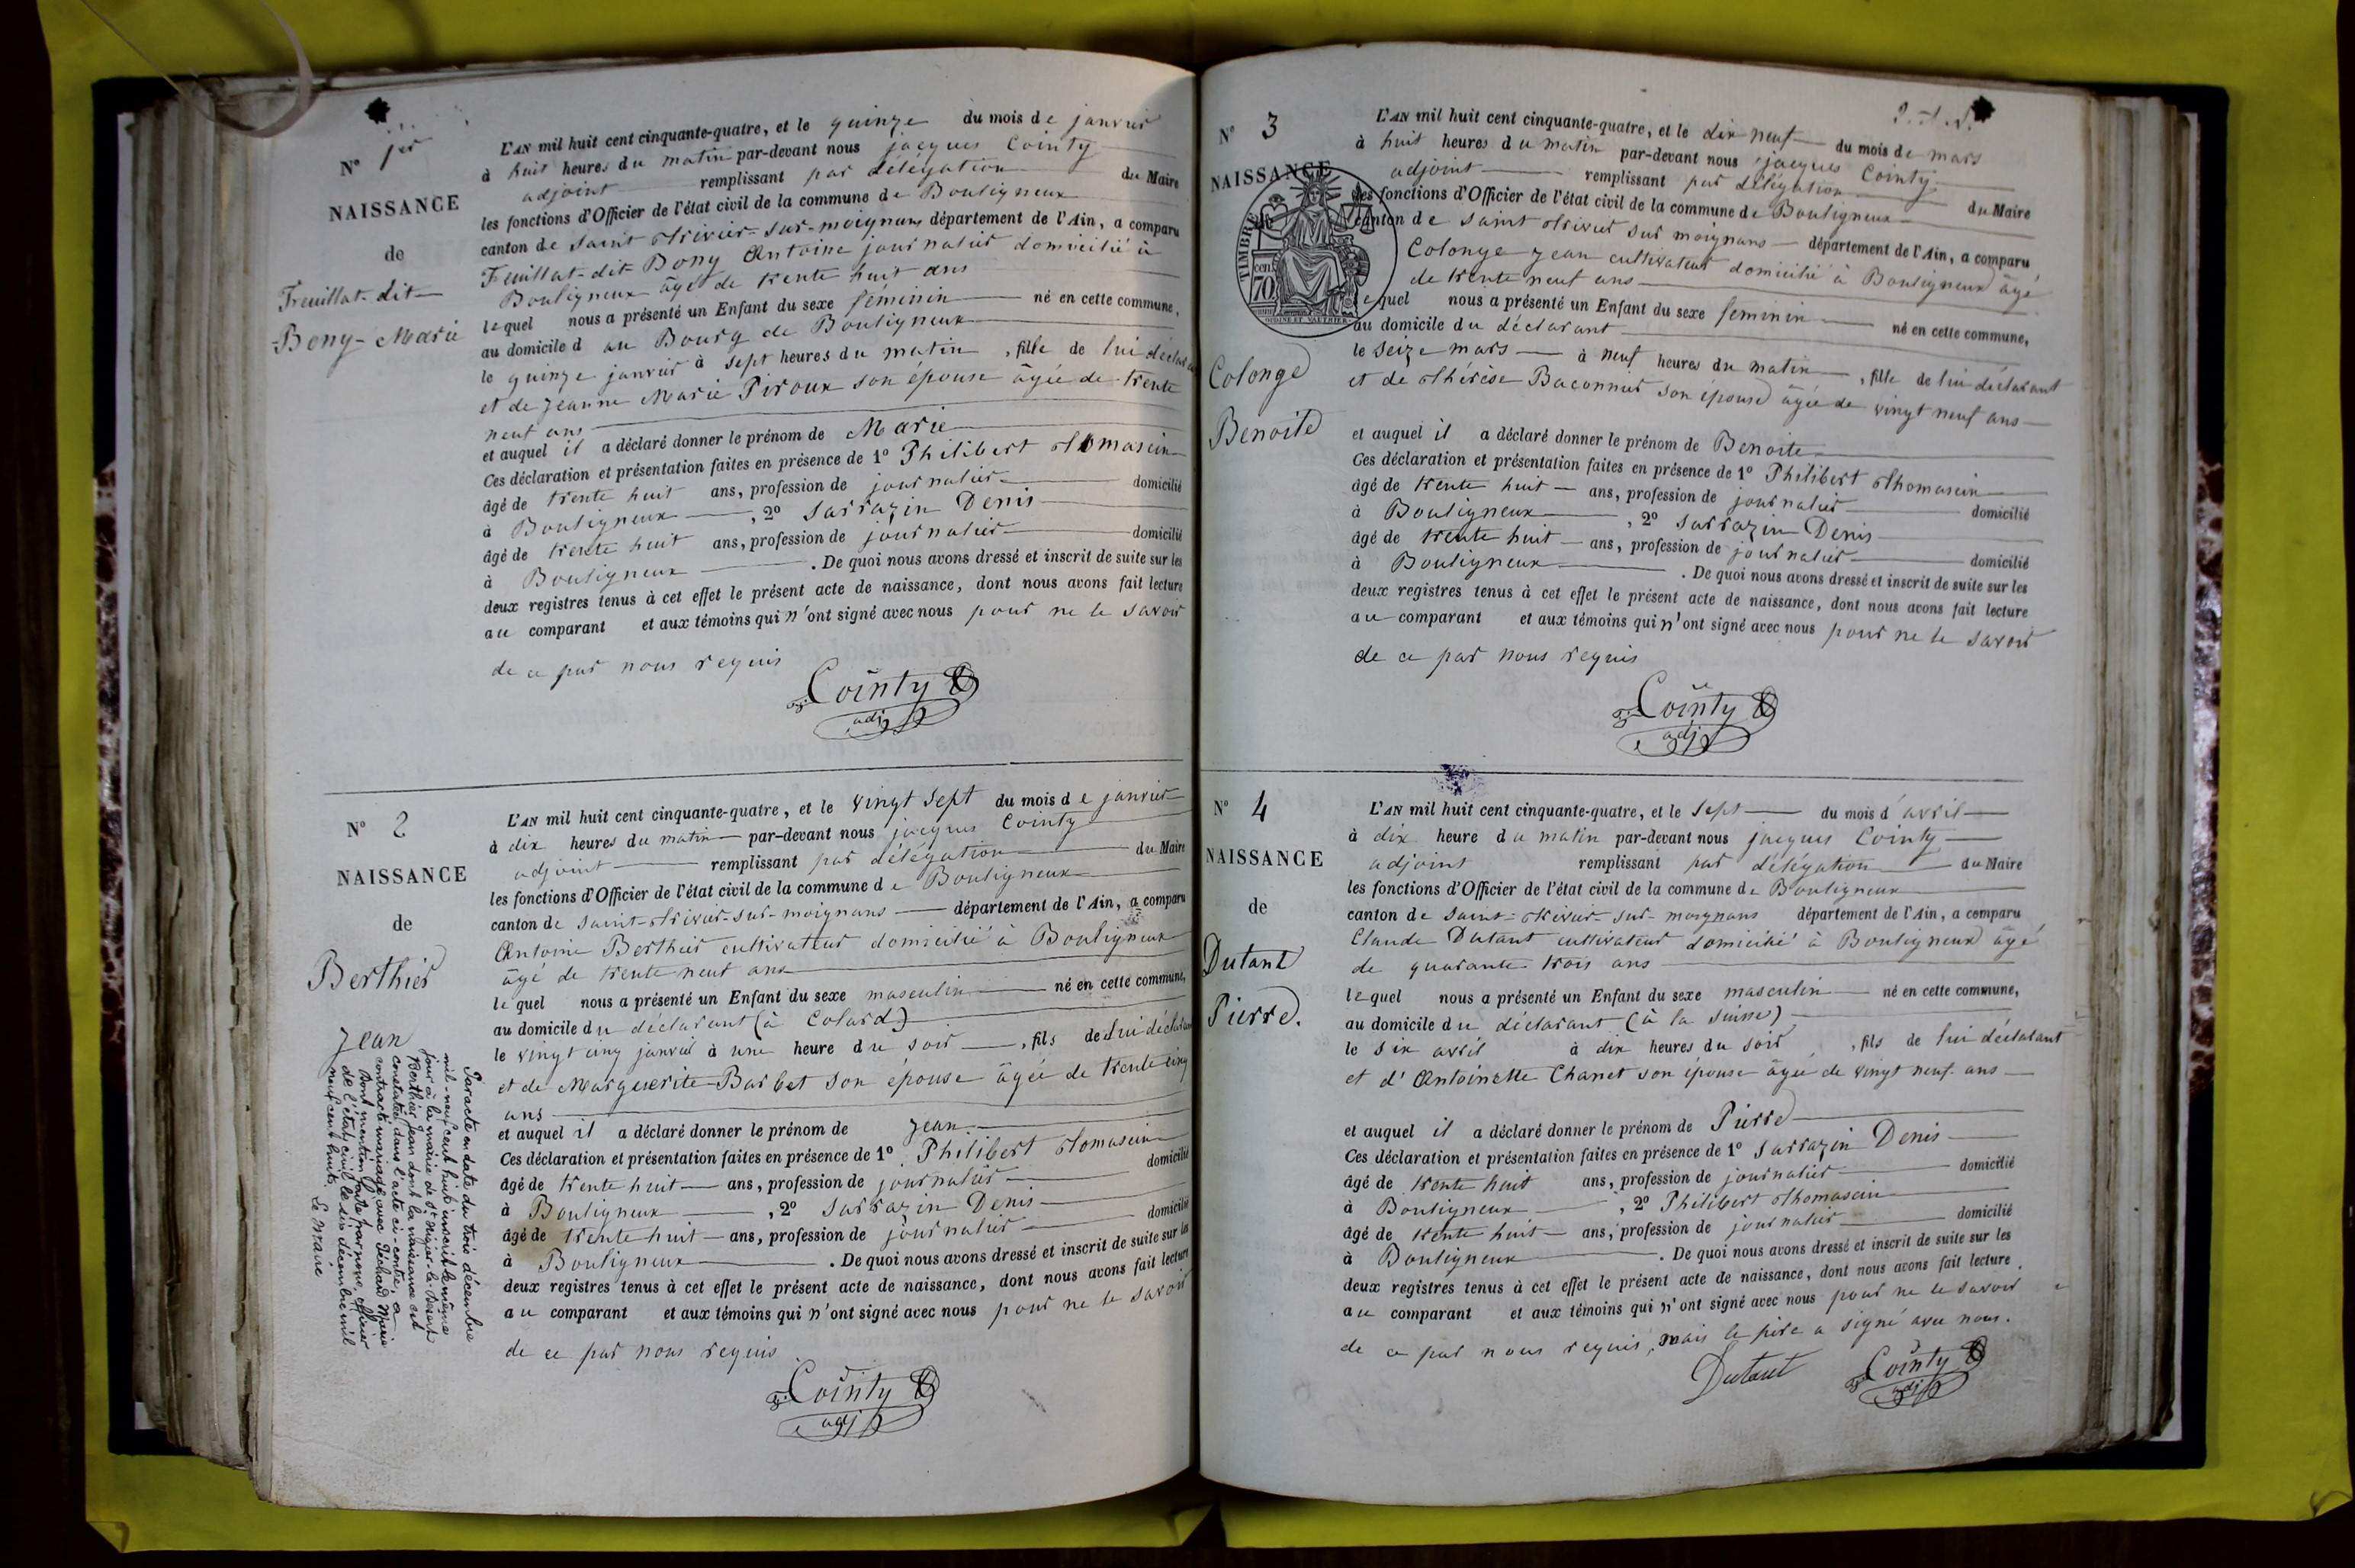 N° 1er
NAISSANCE
de
Feuillat-dit-
Bony-Marie
L'AN mil huit cent cinquante-quatre, et le quinze du mois de janvier
à huit heures du matin par-devant nous jacques Cointy
adjoint remplissant par délégation du Maire
les fonctions d'Officier de l'état civil de la commune de Bouligneux
canton de saint-trivier-sur-moignans département de l'Ain, a comparu
Feuillat-dit-Bony Antoine journalier domicilié à
Bouligneux âgé de trente huit ans
lequel nous a présenté un Enfant du sexe féminin né en cette commune,
au domicile d au Bourg de Bouligneux
le quinze janvier à sept heures du matin, fille de lui déclarant
et de jeanne Marie Piroux son épouse âgée de trente
neuf ans
et auquel il a déclaré donner le prénom de Marie
Ces déclaration et présentation faites en présence de 1° Philibert thomasin
âgé de trente huit ans, profession de journalier domicilié
à Bouligneux, 2° Sarrazin Denis
âgé de trente huit ans, profession de journalier domicilié
à Bouligneux. De quoi nous avons dressé et inscrit de suite sur les
deux registres tenus à cet effet le présent acte de naissance, dont nous avons fait lecture
au comparant et aux témoins qui n'ont signé avec nous pour ne le savoir
de ce par nous requis
Cointy
adj
N° 2
NAISSANCE
de
Berthier
Jean
Par acte en date du trois décembre
mil-neuf cent huit inscrit le même
jour à la mairie de
Berthier Jean dont la naissance est
constatée dans l'acte ci-contre, a
contracté mariage avec Péchard Marie
Dont mention faite par nous, officier
de l'état civil le six décembre mil
neuf cent huit.
Le Maire
L'AN mil huit cent cinquante-quatre, et le vingt sept du mois de janvier
à dix heures du matin par-devant nous jacques Cointy
adjoint remplissant par délégation du Maire
les fonctions d'Officier de l'état civil de la commune de Bouligneux
canton de saint-trivier-sur-moignans département de l'Ain, a comparu
Antoine Berthier cultivateur domicilié à Bouligneux
âgé de trente neuf ans
lequel nous a présenté un Enfant du sexe masculin né en cette commune,
au domicile du déclarant (à Colard)
le vingt cinq janvier à une heure du soir, fils de lui déclarant
et de Marguerite Barbet son épouse âgée de trente cinq
ans
et auquel il a déclaré donner le prénom de Jean
Ces déclaration et présentation faites en présence de 1° Philibert thomasin
âgé de trente huit ans, profession de journalier domicilié
à Bouligneux, 2° Sarrazin Denis
âgé de trente huit ans, profession de journalier domicilié
à Bouligneux. De quoi nous avons dressé et inscrit de suite sur les
deux registres tenus à cet effet le présent acte de naissance, dont nous avons fait lecture
au comparant et aux témoins qui n'ont signé avec nous pour ne le savoir
de ce par nous requis
Cointy
adj
N° 3
NAISSANCE
TIMBRE
cen.
70
Colonge
Benoite
L'AN mil huit cent cinquante-quatre, et le dix neuf du mois de mars
à huit heures du matin par-devant nous jacques Cointy
adjoint remplissant par délégation du Maire
les fonctions d'Officier de l'état civil de la commune de Bouligneux
canton de saint trivier sur moignans département de l'Ain, a comparu
Colonge jean cultivateur domicilié à Bouligneux âgé
de trente neuf ans
lequel nous a présenté un Enfant du sexe féminin né en cette commune,
au domicile du déclarant
le seize mars à neuf heures du matin, fille de lui déclarant
et de thérèse Baconnier son épouse âgée de vingt neuf ans
et auquel il a déclaré donner le prénom de Benoite
Ces déclaration et présentation faites en présence de 1° Philibert thomasin
âgé de trente huit ans, profession de journalier domicilié
à Bouligneux, 2° Sarrazin Denis
âgé de trente huit ans, profession de journalier domicilié
à Bouligneux. De quoi nous avons dressé et inscrit de suite sur les
deux registres tenus à cet effet le présent acte de naissance, dont nous avons fait lecture
au comparant et aux témoins qui n'ont signé avec nous pour ne le savoir
de ce par nous requis
Cointy
adj
N° 4
NAISSANCE
de
Dutant
Pierre.
L'AN mil huit cent cinquante-quatre, et le sept du mois d'avril
à dix heure du matin par-devant nous jacques Cointy
adjoint remplissant par délégation du Maire
les fonctions d'Officier de l'état civil de la commune de Bouligneux
canton de saint-trivier-sur-moignans département de l'Ain, a comparu
Claude Dutant cultivateur domicilié à Bouligneux âgé
de quarante trois ans
lequel nous a présenté un Enfant du sexe masculin né en cette commune,
au domicile du déclarant (à la suisse)
le six avril à dix heures du soir, fils de lui déclarant
et d'Antoinette Chanet son épouse âgée de vingt neuf ans
et auquel il a déclaré donner le prénom de Pierre
Ces déclaration et présentation faites en présence de 1° Sarrazin Denis
âgé de trente huit ans, profession de journalier domicilié
à Bouligneux, 2° Philibert thomasin
âgé de trente huit ans, profession de journalier domicilié
à Bouligneux. De quoi nous avons dressé et inscrit de suite sur les
deux registres tenus à cet effet le présent acte de naissance, dont nous avons fait lecture
au comparant et aux témoins qui n'ont signé avec nous pour ne le savoir
de ce par nous requis, mais le père a signé avec nous.
Dutant Cointy
adj